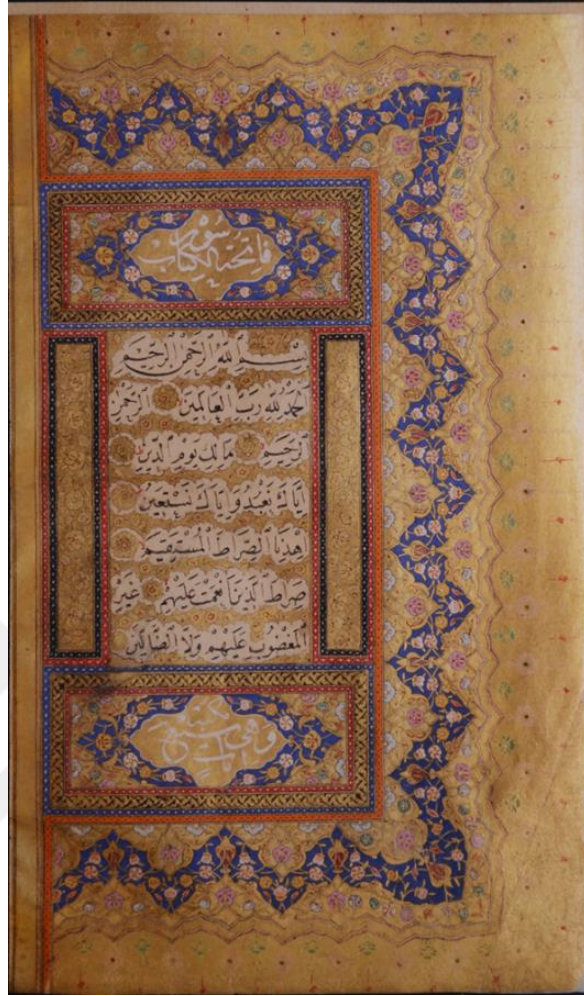 سورة
فاتحة الكتاب
بِسْمِ اللّٰهِ الرَّحْمٰنِ الرَّحِيمِ
اَلْحَمْدُ لِلّٰهِ رَبِّ الْعَالَمِينَ الرَّحْمٰنِ
الرَّحِيمِ مَالِكِ يَوْمِ الدِّينِ
اِيَّاكَ نَعْبُدُ وَاِيَّاكَ نَسْتَعِينُ
اِهْدِنَا الصِّرَاطَ الْمُسْتَقِيمَ
صِرَاطَ الَّذِينَ اَنْعَمْتَ عَلَيْهِمْ غَيْرِ
الْمَغْضُوبِ عَلَيْهِمْ وَلَا الضَّالِّينَ
مكية
وهي سبع
آيات